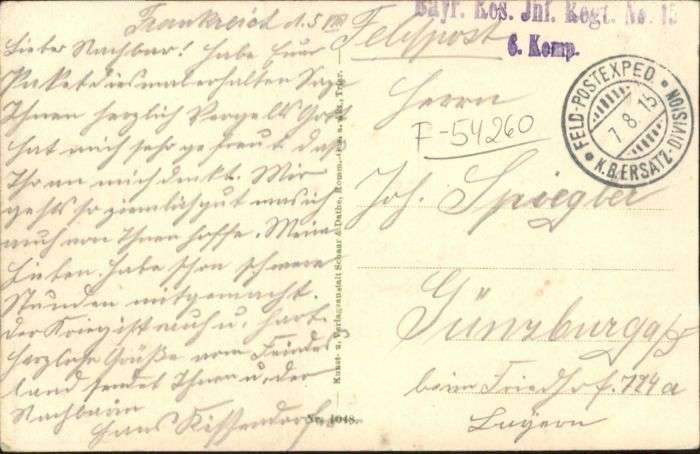 Frankreich d. 5 VIII
Lieber Nachbar! habe Euer
Paket diesmal erhalten Sage
Ihnen herzlich Vergelts Gott
hat mich sehr gefreut daß
Ihr an mich denkt. Mir
gehts so ziemlich gut was ich
auch von Ihnen hoffe. Meine
Lieben habe schon schwere
Stunden mitgemacht.
der Krieg ist auch u. hart.
herzliche Grüße vom Feindes
land sendet Ihnen u. der
Nachbarin
Hans
Bayr. Res. Inf. Regt. No. 15
6. Komp.
Feldpost
FELD-POSTEXPED
7.8.15
K.B. ERSATZ-DIVISION
Herrn
F-54260
Joh. Spiegler
Günzburg a/D
beim Friedhof. 124a
Bayern
Kunst- u. Verlagsanstalt Schaar & Dathe, Komm.-Ges. a. Akt., Trier.
Nr. 1048.